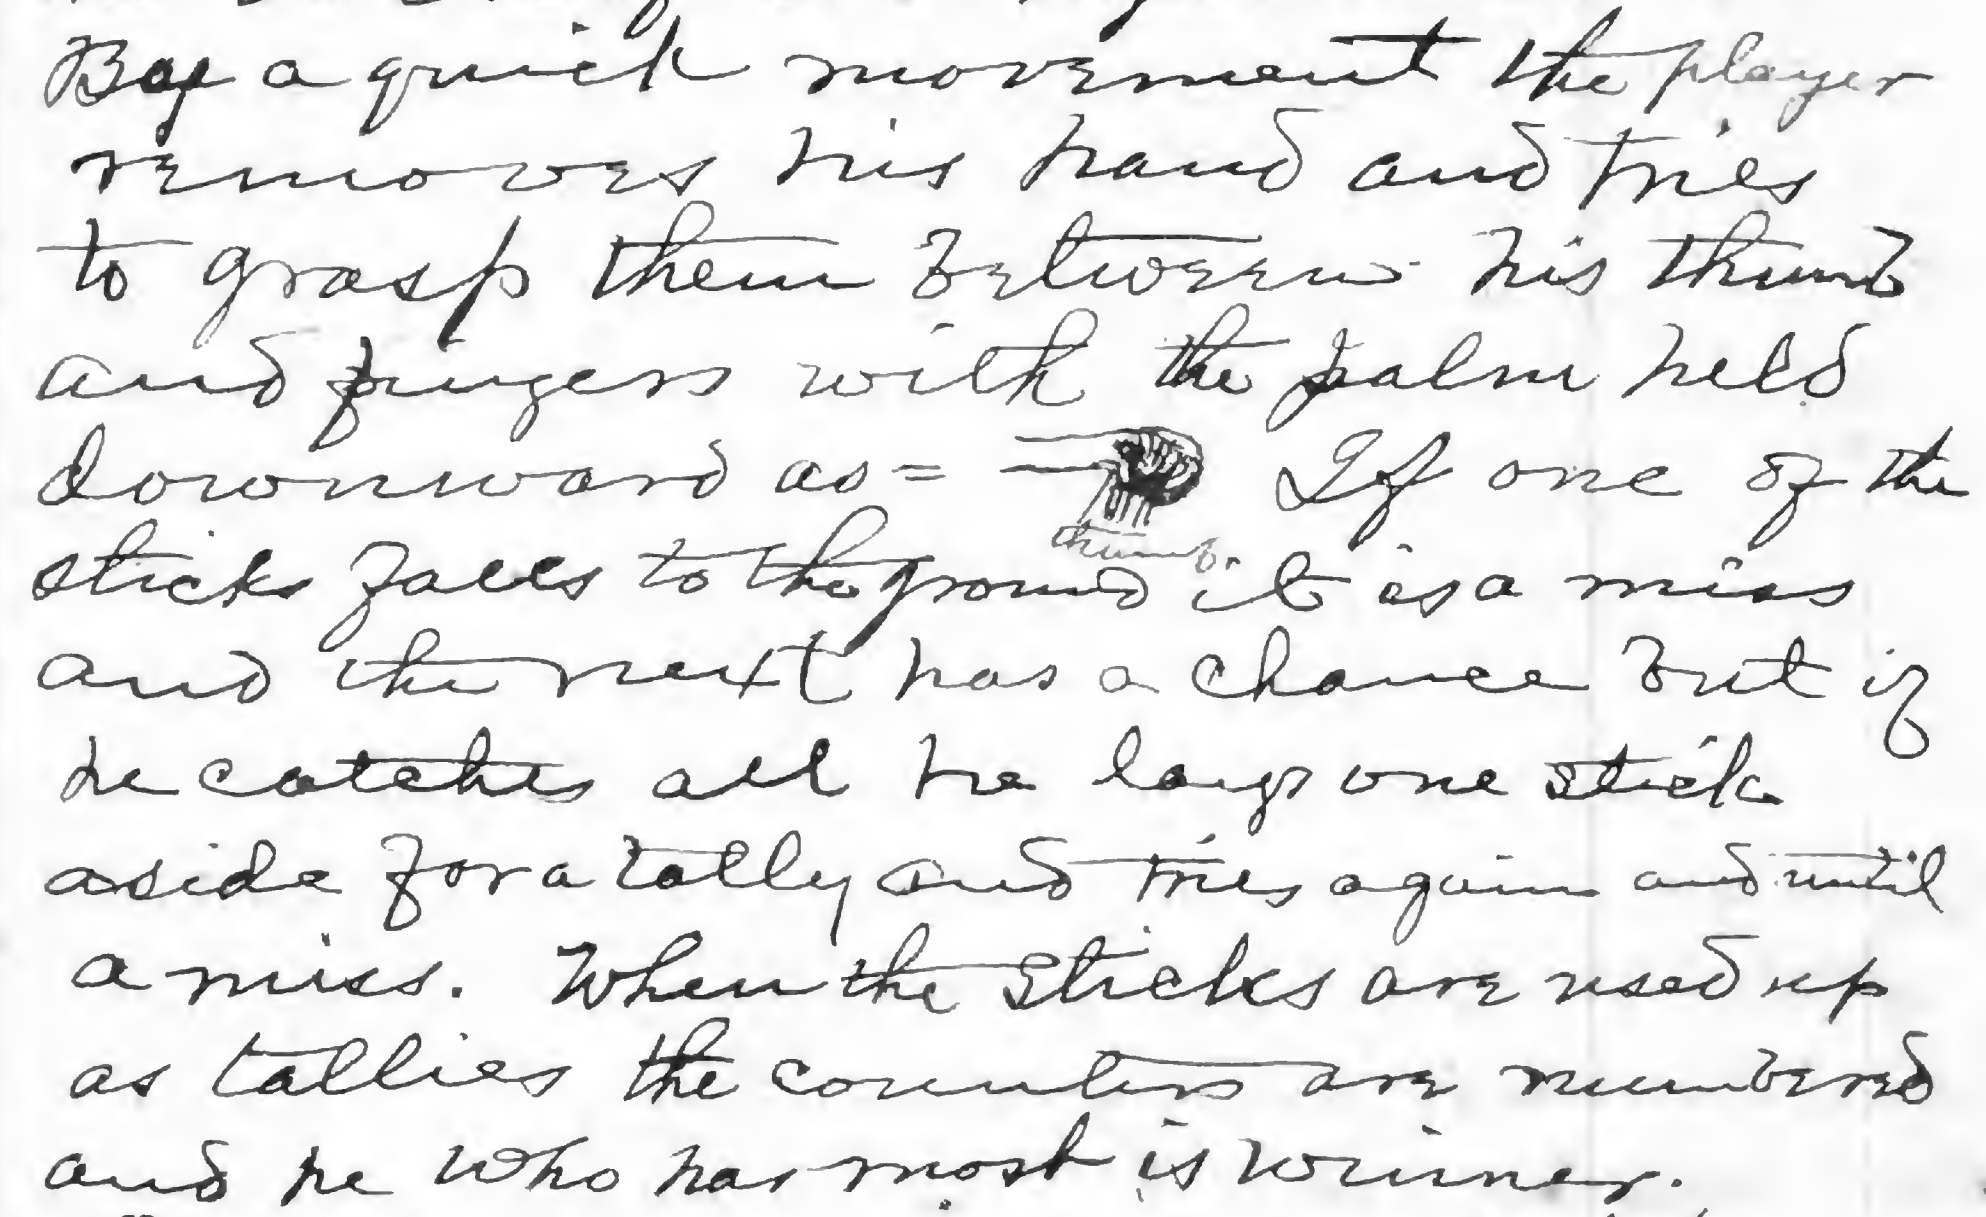 By a quick movement the player
removes his hand and tries
to grasp them between his thumb
and fingers with the palm held
downward as = If one of the
thumb.
sticks falls to the ground it is a miss
and the next has a chance but if
he catches all he lays one stick
aside for a tally and tries again and until
a miss. When the sticks are used up
as tallies the counters are numbered
and he who has most is winner.